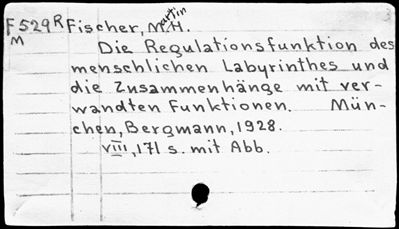 F529R Fischer, Martin H.
M
Die Regulationsfunktion des
menschlichen Labyrinthes und
die Zusammenhänge mit ver-
wandten Funktionen. Mün-
chen, Bergmann, 1928.
VIII, 171 s. mit Abb.